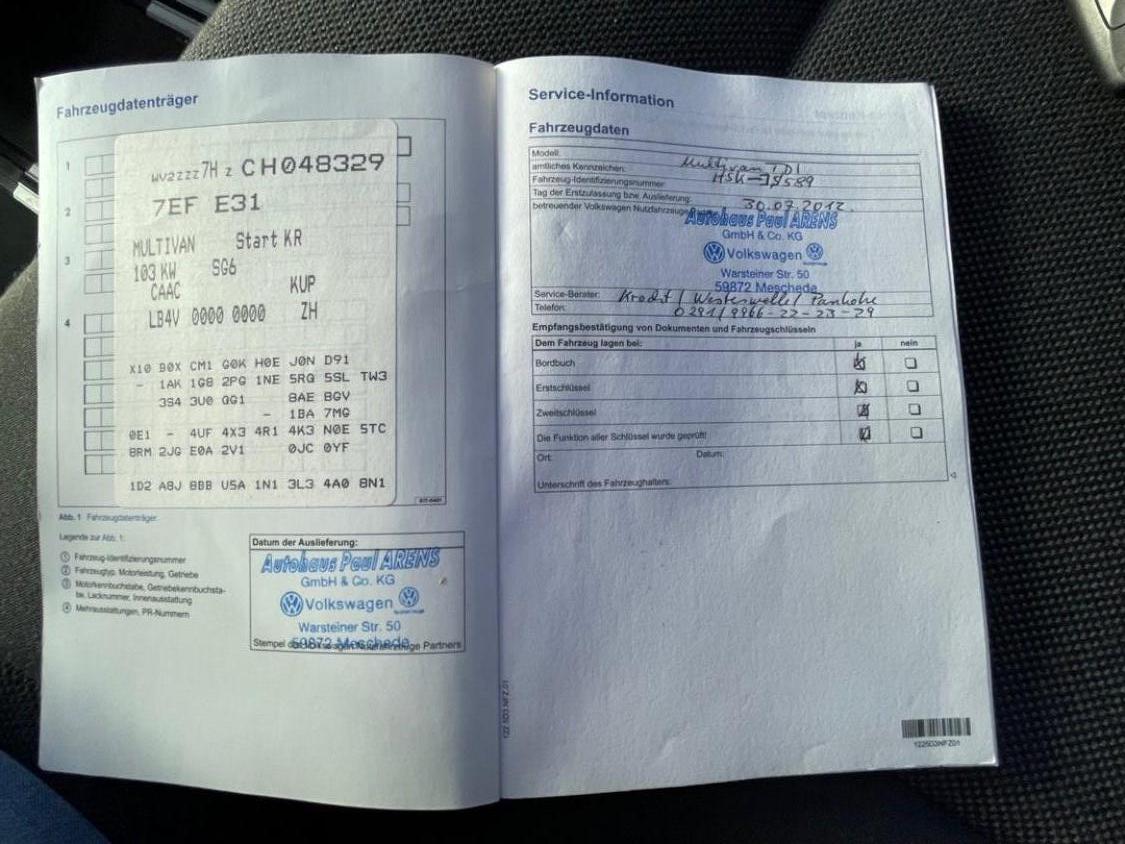 Fahrzeugdatenträger
1
2
3
4
WV2ZZZ7H Z CH048329
7EF E31
MULTIVAN Start KR
103 KW SG6
CAAC KUP
LB4V 0000 0000 ZH
X10 B0X CM1 G0K H0E J0N D91
- 1AK 1G8 2PG 1NE 5RG 5SL TW3
3S4 3U0 GG1 8AE 8GV
- 1BA 7MG
0E1 - 4UF 4X3 4R1 4K3 N0E 5TC
8RM 2JG E0A 2V1 0JC 0YF
1D2 A8J BBB U5A 1N1 3L3 4A0 8N1
Abb. 1 Fahrzeugdatenträger.
Legende zur Abb. 1:
① Fahrzeug-Identifizierungsnummer
② Fahrzeugtyp, Motorleistung, Getriebe
③ Motorkennbuchstabe, Getriebekennbuchsta-
be, Lacknummer, Innenausstattung
④ Mehrausstattungen, PR-Nummern
Datum der Auslieferung:
Autohaus Paul ARENS
GmbH & Co. KG
Volkswagen
Warsteiner Str. 50
59872 Meschede
Stempel Partners
Service-Information
Fahrzeugdaten
Modell: Multivan TDI
amtliches Kennzeichen: HSK-
Fahrzeug-Identifizierungsnummer:
Tag der Erstzulassung bzw. Auslieferung: 30.07.2012.
betreuender Volkswagen Nutzfahrzeuge
Autohaus Paul ARENS
GmbH & Co. KG
Volkswagen
Warsteiner Str. 50
59872 Meschede
Service-Berater:
Telefon: 0291/9966-22-23-29
Empfangsbestätigung von Dokumenten und Fahrzeugschlüsseln
Dem Fahrzeug lagen bei: ja nein
Bordbuch
Erstschlüssel
Zweitschlüssel
Die Funktion aller Schlüssel wurde geprüft!
Ort: Datum:
Unterschrift des Fahrzeughalters:
122.5D3.NFZ.01
1225D3NFZ01